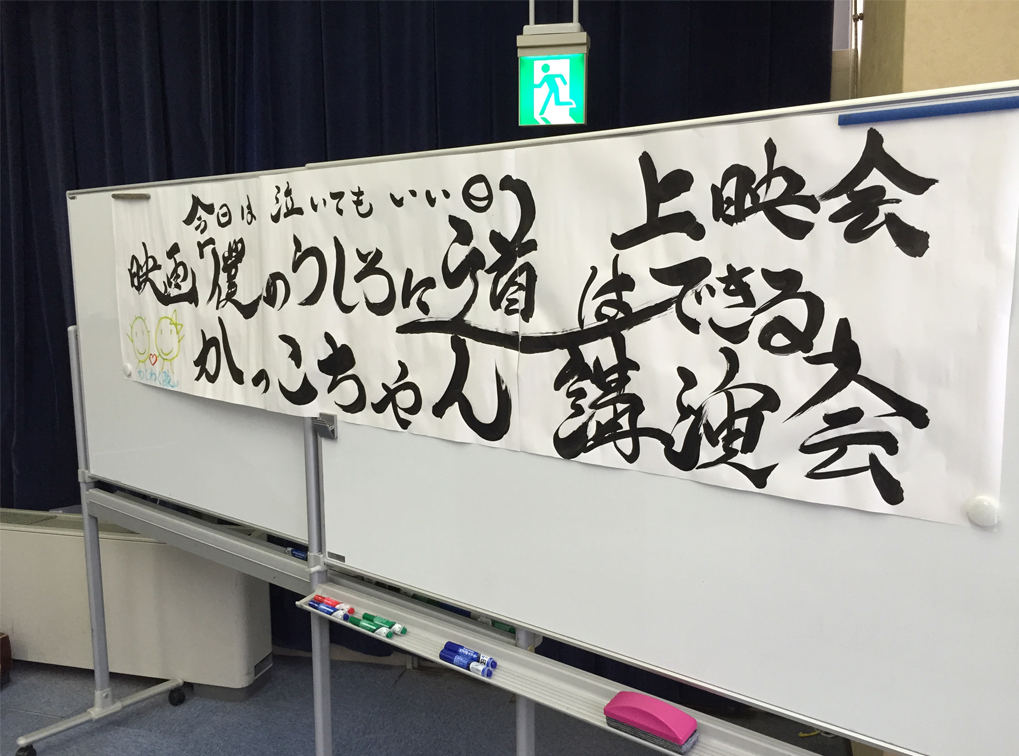 今日は 泣いても いい日
映画「僕のうしろに道はできる
上映会
かっこちゃん 講演会